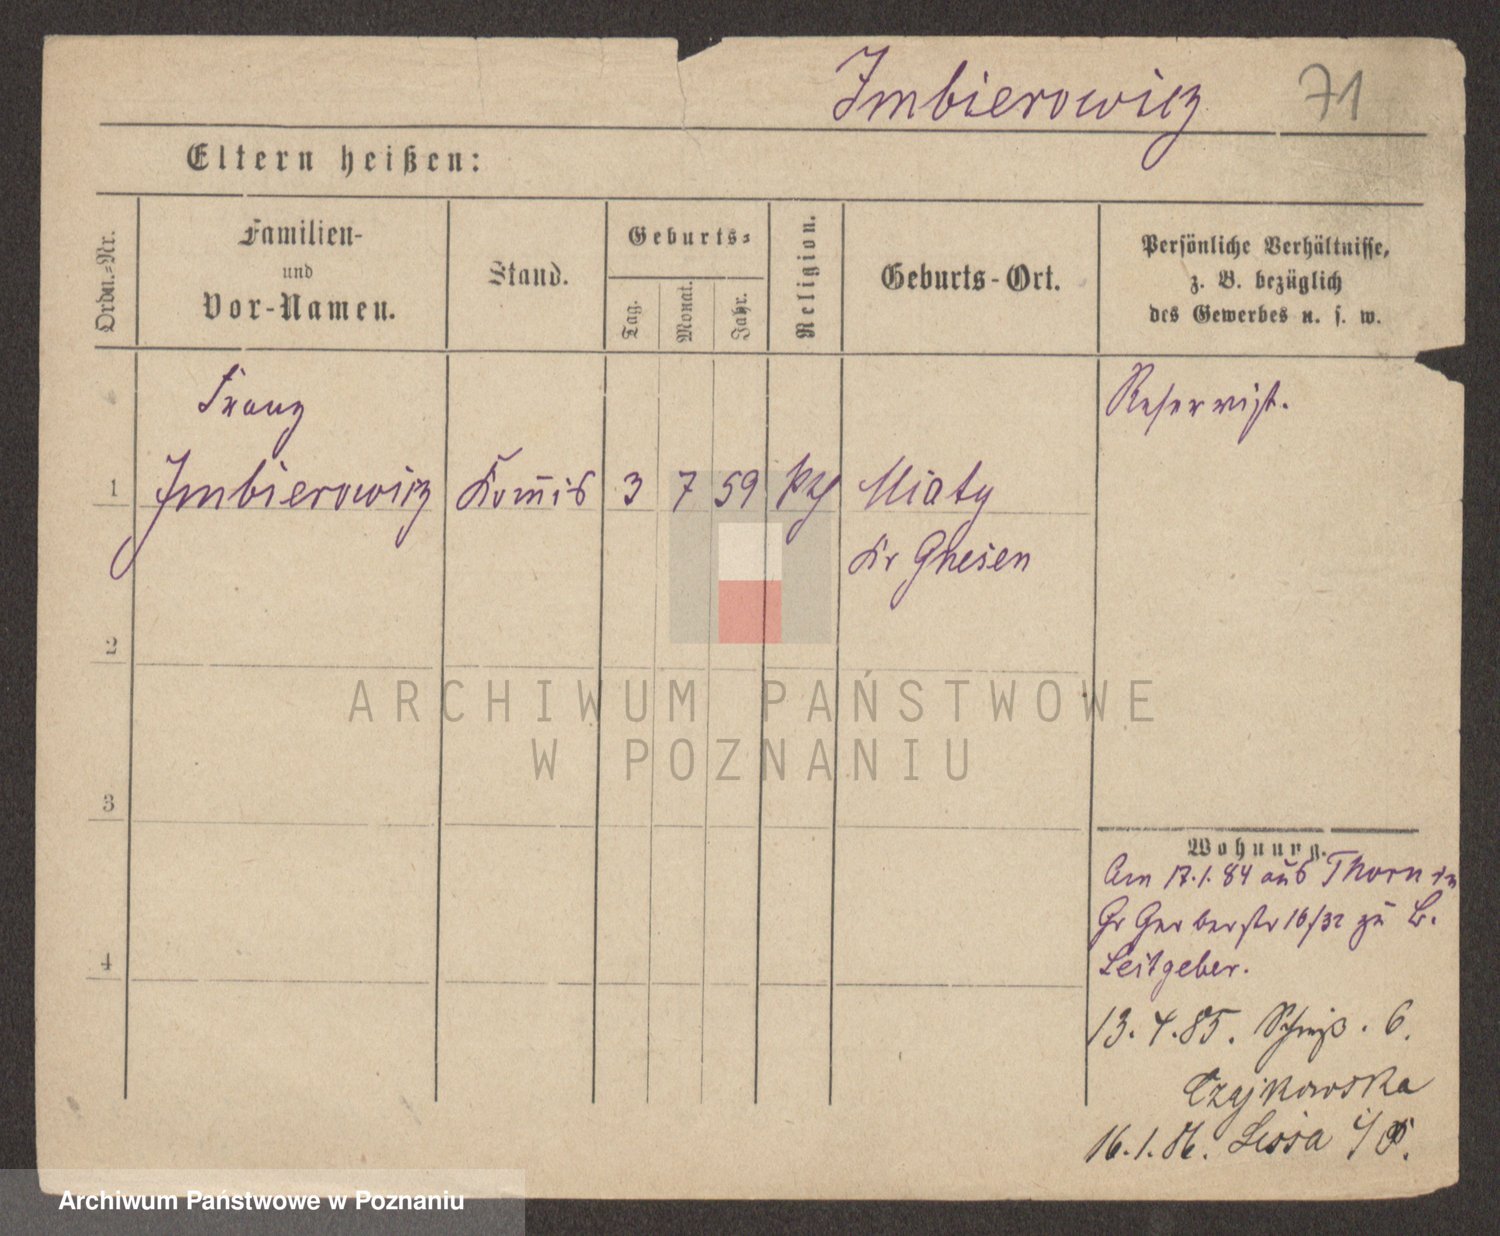 Imbierowicz 71
Eltern heißen:
Ordn.-Nr.
Familien-
und
Vor-Namen.
Stand.
Geburts-
Tag.
Monat.
Jahr.
Religion.
Geburts-Ort.
Persönliche Verhältnisse,
z. B. bezüglich
des Gewerbes u. s. w.
Franz
Reservist.
1 Imbierowicz Kom̅is 3 7 59 Miaty
Kr Gnesen
2
3
4
Wohnung.
Am 17.1.84 aus Thorn in
Gr Gerberstr 16/32 zu
Leitgeber.
13.4.85. 6.
Czajkowska
16.1.86. Lissa i/P.
ARCHIWUM PAŃSTWOWE
W POZNANIU
Archiwum Państwowe w Poznaniu